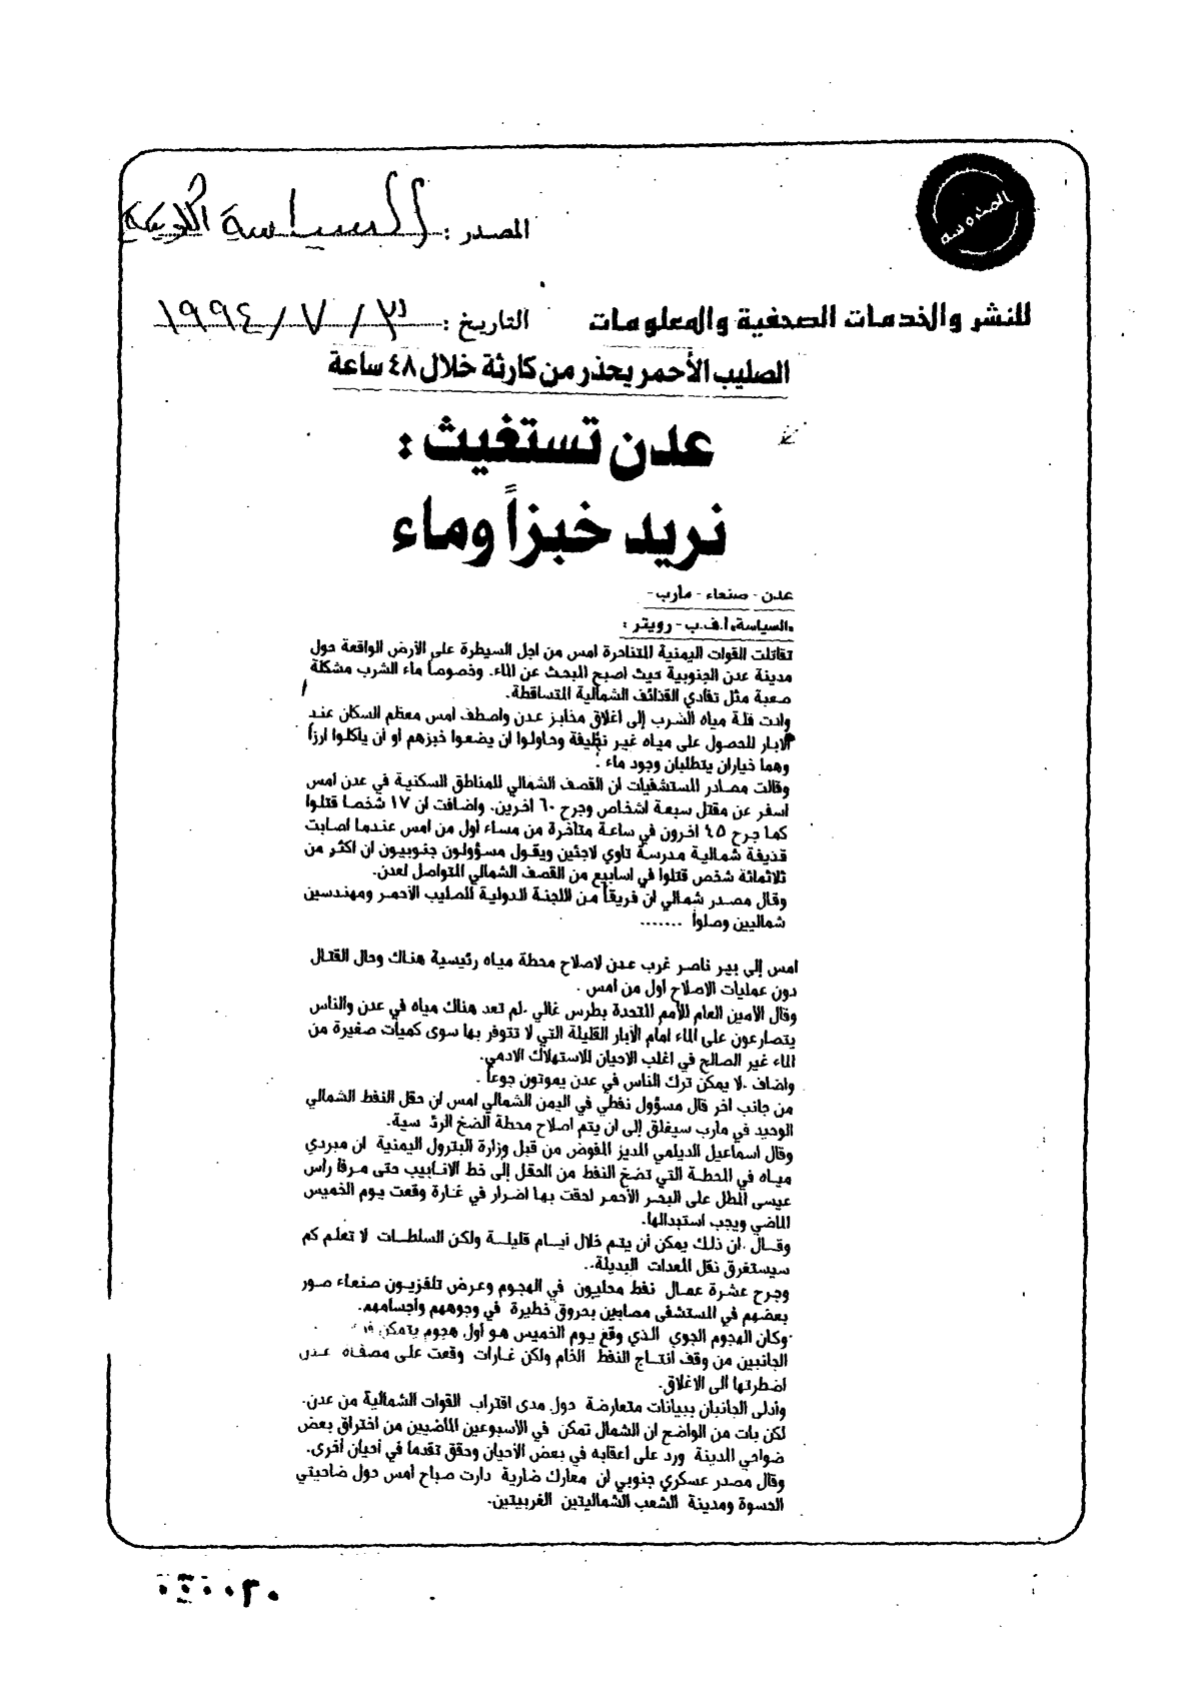 المصدر : السياسة الكويتية
للنشر والخدمات الصحفية والمعلومات
التاريخ : ٣ / ٧ / ١٩٩٤
الصليب الأحمر يحذر من كارثة خلال ٤٨ ساعة
عدن تستغيث :
نريد خبزاً وماء
عدن - صنعاء - مارب -
«السياسة» ا.ف.ب - رويتر :
تقاتلت القوات اليمنية المتناحرة امس من اجل السيطرة على الأرض الواقعة حول
مدينة عدن الجنوبية حيث اصبح البحث عن الماء. وخصوصا ماء الشرب مشكلة
صعبة مثل تفادي القذائف الشمالية المتساقطة.
وادت قلة مياه الشرب إلى اغلاق مخابز عدن واصطف امس معظم السكان عند
الآبار للحصول على مياه غير نظيفة وحاولوا ان يضعوا خبزهم او ان يأكلوا ارزا
وهما خياران يتطلبان وجود ماء .
وقالت مصادر المستشفيات ان القصف الشمالي للمناطق السكنية في عدن امس
اسفر عن مقتل سبعة اشخاص وجرح ٦٠ اخرين. واضافت ان ١٧ شخصا قتلوا
كما جرح ٤٥ اخرون في ساعة متاخرة من مساء اول من امس عندما اصابت
قذيفة شمالية مدرسة تاوي لاجئين ويقول مسؤولون جنوبيون ان اكثر من
ثلاثمائة شخص قتلوا في اسابيع من القصف الشمالي المتواصل لعدن.
وقال مصدر شمالي ان فريقا من اللجنة الدولية للصليب الأحمر ومهندسين
شماليين وصلوا .......
امس إلى بير ناصر غرب عدن لاصلاح محطة مياه رئيسية هناك وحال القتال
دون عمليات الاصلاح اول من امس .
وقال الامين العام للأمم المتحدة بطرس غالي .لم تعد هناك مياه في عدن والناس
يتصارعون على الماء امام الآبار القليلة التي لا تتوفر بها سوى كميات صغيرة من
الماء غير الصالح في اغلب الاحيان للاستهلاك الادمي.
واضاف .لا يمكن ترك الناس في عدن يموتون جوعا .
من جانب اخر قال مسؤول نفطي في اليمن الشمالي امس ان حقل النفط الشمالي
الوحيد في مارب سيغلق إلى ان يتم اصلاح محطة الضخ الرئ سية.
وقال اسماعيل الديلمي المدير المفوض من قبل وزارة البترول اليمنية ان مبردي
مياه في المحطة التي تضخ النفط من الحقل إلى خط الانابيب حتى مرفأ رأس
عيسى المطل على البحر الأحمر لحقت بها اضرار في غارة وقعت يوم الخميس
الماضي ويجب استبدالها.
وقال .ان ذلك يمكن أن يتم خلال أيام قليلة ولكن السلطات لا تعلم كم
سيستغرق نقل المعدات البديلة..
وجرح عشرة عمال نفط محليون في الهجوم وعرض تلفزيون صنعاء صور
بعضهم في المستشفى مصابين بحروق خطيرة في وجوههم وأجسامهم.
وكان الهجوم الجوي الذي وقع يوم الخميس هو أول هجوم يتمكن
الجانبين من وقف انتاج النفط الخام ولكن غارات وقعت على مصفاة عدن
اضطرتها الى الاغلاق.
وأدلى الجانبان ببيانات متعارضة حول مدى اقتراب القوات الشمالية من عدن.
لكن بات من الواضح ان الشمال تمكن في الأسبوعين الماضيين من اختراق بعض
ضواحي المدينة ورد على اعقابه في بعض الأحيان وحقق تقدما في أحيان أخرى.
وقال مصدر عسكري جنوبي ان معارك ضارية دارت صباح أمس حول ضاحيتي
الحسوة ومدينة الشعب الشماليتين الغربيتين.